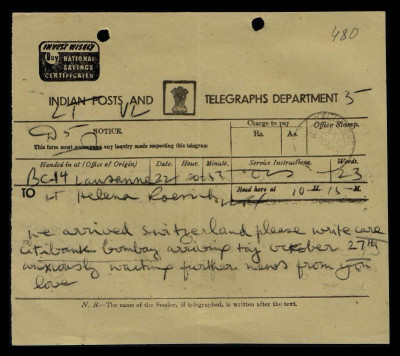 480
INVEST WISELY
Buy NATIONAL
SAVINGS
CERTIFICATES
INDIAN POSTS AND TELEGRAPHS DEPARTMENT
LT
5
NOTICE.
Charge to pay
Office Stamp.
This form must accompany any inquiry made respecting this telegram
Rs. As.
Handed in at (Office of Origin) Date. Hour. Minute. Service Instructions. Words.
Lausanne 22 23
TO LT Helena Roerich
Read here at 10 H. 15 M.
we arrived switzerland please write care
citibank bombay arriving october 27th
anxiously waiting further news from you
love
N. B.—The name of the Sender, if telegraphed, is written after the text.